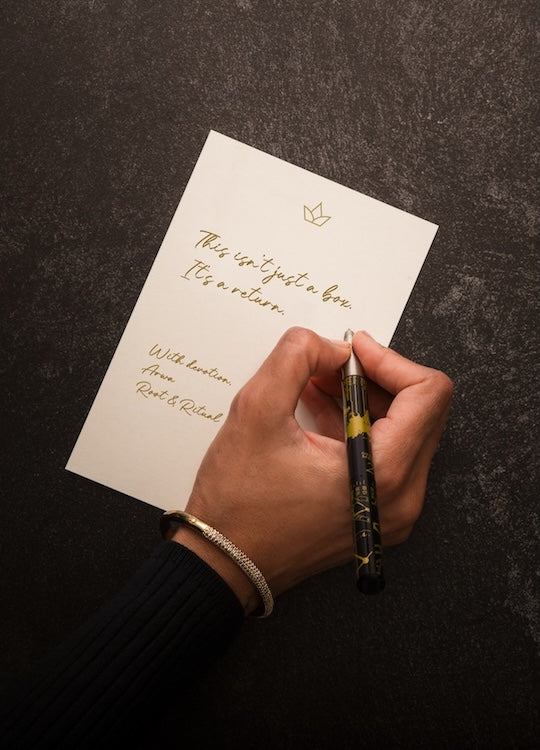 This isn't just a box.
It's a return.
With devotion,
Arwa
Root & Ritual